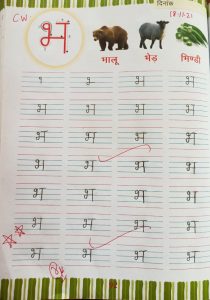 दिनांक
CW
18-11-21
भ
भालू भेड़ भिण्डी
१ भ भ भ
भ भ भ भ
भ भ भ भ
भ भ भ भ
भ भ भ भ
भ भ भ भ
भ भ भ भ
भ भ भ भ